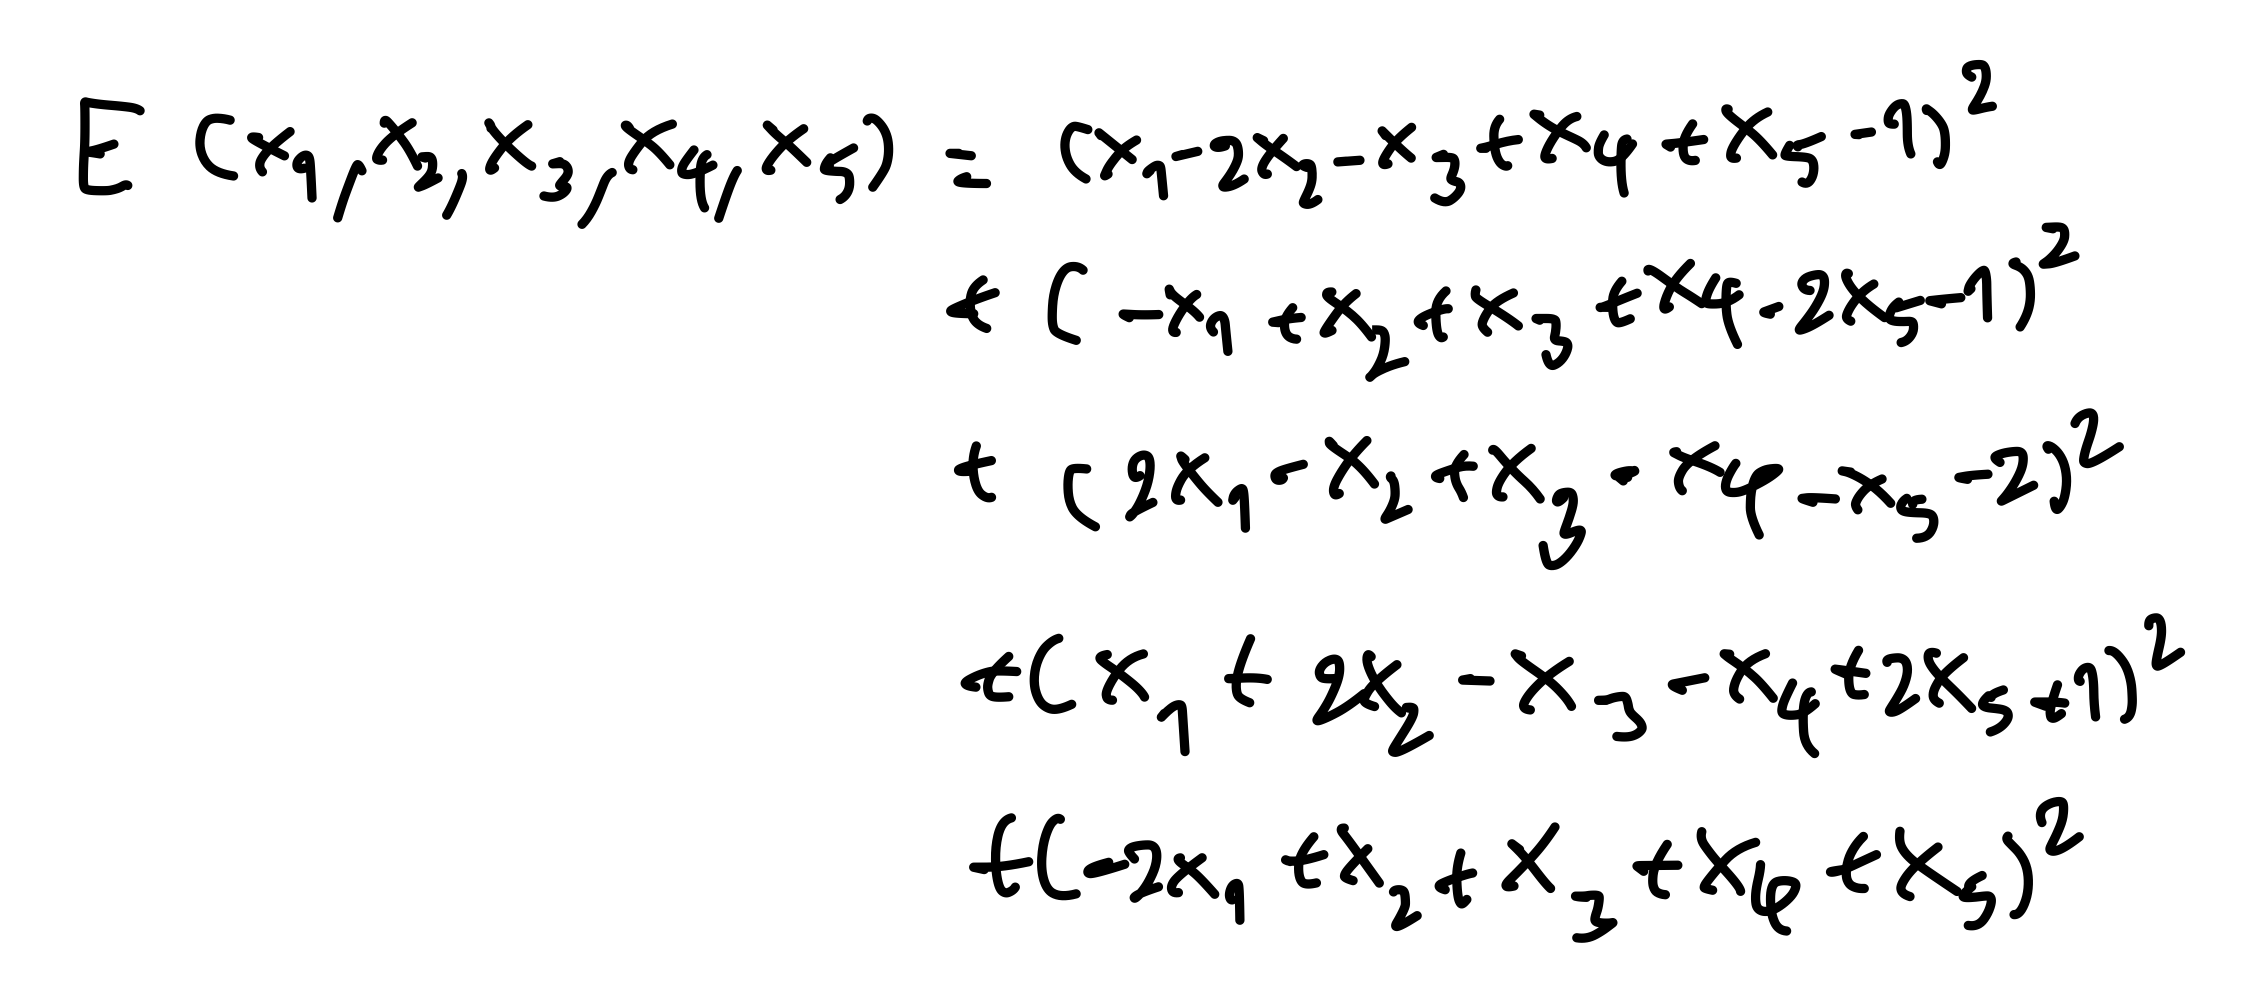 E (x₁, x₂, x₃, x₄, x₅) = (x₁ - 2x₂ - x₃ + x₄ + x₅ - 1)²
+ (-x₁ + x₂ + x₃ + x₄ - 2x₅ - 1)²
+ (2x₁ - x₂ + x₃ - x₄ - x₅ - 2)²
+ (x₁ + 2x₂ - x₃ - x₄ + 2x₅ + 1)²
+ (-2x₁ + x₂ + x₃ + x₄ + x₅)²